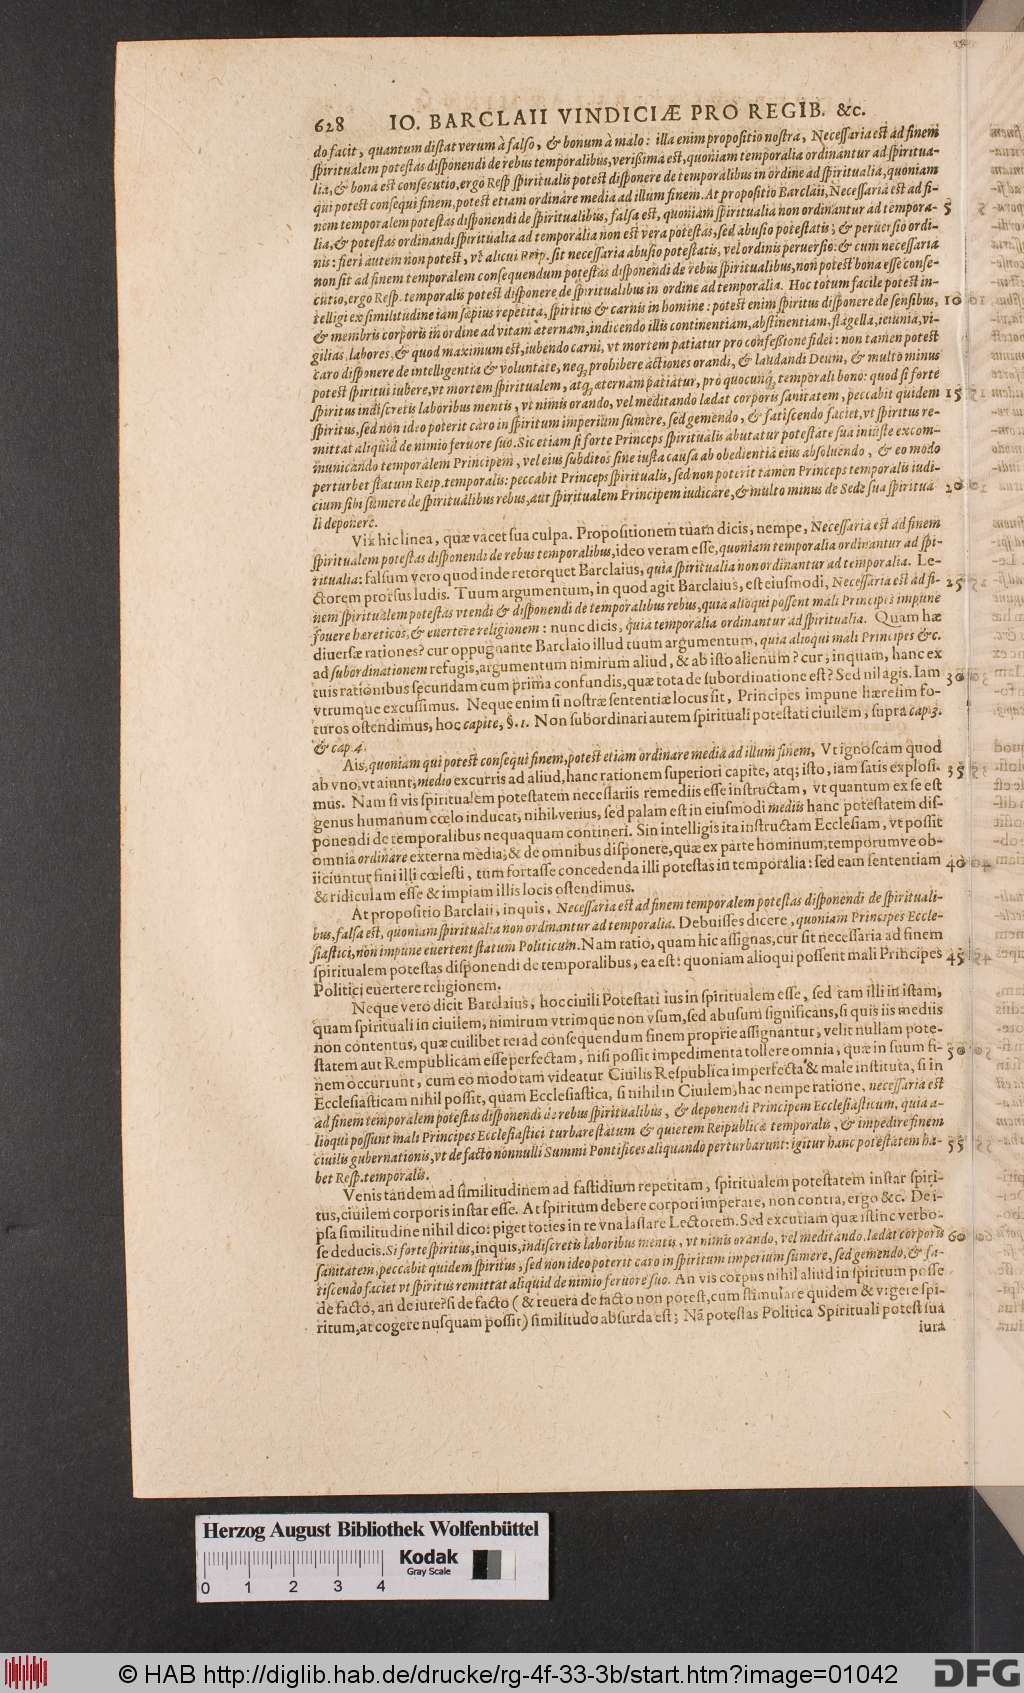 628 IO. BARCLAII VINDICIÆ PRO REGIB. &c.
do facit, quantum distat verum à falso, & bonum à malo: illa enim propositio nostra, Necessaria est ad finem
spiritualem potestas disponendi de rebus temporalibus, verißima est, quoniam temporalia ordinantur ad spiritua-
lia, & bona est consecutio, ergo Resp spiritualis potest disponere de temporalibus in ordine ad spiritualia, quoniam
qui potest consequi finem, potest etiam ordinare media ad illum finem. At propositio Barclaii, Necessaria est ad fi-
nem temporalem potestas disponendi de spiritualibus, falsa est, quoniam spiritualia non ordinantur ad tempora- 5
lia, & potestas ordinandi spiritualia ad temporalia non est vera potestas, sed abusio potestatis; & peruersio ordi-
nis: fieri autem non potest, vt alicui Reip. sit necessaria abusio potestatis, vel ordinis peruersio: & cum necessaria
non sit ad finem temporalem consequendum potestas disponendi de rebus spiritualibus, non potest bona esse conse-
cutio, ergo Resp. temporalis potest disponere de spiritualibus in ordine ad temporalia. Hoc totum facile potest in-
telligi ex similitudine iam sæpius repetita, spiritus & carnis in homine: potest enim spiritus disponere de sensibus, 10
& membris corporis in ordine ad vitam æternam, indicendo illis continentiam, abstinentiam, flagella, ieiunia, vi-
gilias, labores, & quod maximum est, iubendo carni, vt mortem patiatur pro confeßione fidei: non tamen potest
caro disponere de intelligentia & voluntate, neq, prohibere actiones orandi, & laudandi Deum, & multo minus
potest spiritui iubere, vt mortem spiritualem, atq, æternam patiatur, pro quocunq, temporali bono: quod si forte
spiritus indiscretis laboribus mentis, vt nimis orando, vel meditando lædat corporis sanitatem, peccabit quidem 15
spiritus, sed non ideo poterit caro in spiritum imperium sumere, sed gemendo, & fatiscendo faciet, vt spiritus re-
mittat aliquid de nimio feruore suo. Sic etiam si forte Princeps spiritualis abutatur potestate sua iniuste excom-
municando temporalem Principem, vel eius subditos sine iusta causa ab obedientia eius absoluendo, & eo modo
perturbet statum Reip. temporalis: peccabit Princeps spiritualis, sed non poterit tamen Princeps temporalis iudi-
cium sibi sumere de spiritualibus rebus, aut spiritualem Principem iudicare, & multo minus de Sede sua spiritua 20
li deponere.
Vix hic linea, quæ vacet sua culpa. Propositionem tuam dicis, nempe, Necessaria est ad finem
spiritualem potestas disponendi de rebus temporalibus, ideo veram esse, quoniam temporalia ordinantur ad spi-
ritualia: falsum vero quod inde retorquet Barclaius, quia spiritualia non ordinantur ad temporalia. Le-
ctorem prorsus ludis. Tuum argumentum, in quod agit Barclaius, est eiusmodi, Necessaria est ad fi- 25
nem spiritualem potestas vtendi & disponendi de temporalibus rebus, quia alioqui possent mali Principes impune
fouere hæreticos, & euertere religionem: nunc dicis, quia temporalia ordinantur ad spiritualia. Quam hæ
diuersæ rationes? cur oppugnante Barclaio illud tuum argumentum, quia alioqui mali Principes &c.
ad subordinationem refugis, argumentum nimirum aliud, & ab isto alienum? cur, inquam, hanc ex
tuis rationibus secundam cum prima confundis, quæ tota de subordinatione est? Sed nil agis. Iam 30
vtrumque excussimus. Neque enim si nostræ sententiæ locus sit, Principes impune hæresim fo-
turos ostendimus, hoc capite, §. 1. Non subordinari autem spirituali potestati ciuilem, supra cap. 3.
& cap. 4.
Ais, quoniam qui potest consequi finem, potest etiam ordinare media ad illum finem, Vt ignoscam quod
ab vno, vt aiunt, medio excurris ad aliud, hanc rationem superiori capite, atq; isto, iam satis explosi- 35
mus. Nam si vis spiritualem potestatem necessariis remediis esse instructam, vt quantum ex se est
genus humanum cœlo inducat, nihil verius, sed palam est in eiusmodi mediis hanc potestatem dis-
ponendi de temporalibus nequaquam contineri. Sin intelligis ita instructam Ecclesiam, vt possit
omnia ordinare externa media, & de omnibus disponere, quæ ex parte hominum, temporumve ob-
iiciuntur fini illi cœlesti, tum fortasse concedenda illi potestas in temporalia: sed eam sententiam 40
& ridiculam esse & impiam illis locis ostendimus.
At propositio Barclaii, inquis, Necessaria est ad finem temporalem potestas disponendi de spirituali-
bus, falsa est, quoniam spiritualia non ordinantur ad temporalia. Debuisses dicere, quoniam Principes Eccle-
siastici, non impune euertent statum Politicum. Nam ratio, quam hic assignas, cur sit necessaria ad finem
spiritualem potestas disponendi de temporalibus, ea est: quoniam alioqui possent mali Principes 45
Politici euertere religionem.
Neque vero dicit Barclaius, hoc ciuili Potestati ius in spiritualem esse, sed tam illi in istam,
quam spirituali in ciuilem, nimirum vtrimque non vsum, sed abusum significans, si quis iis mediis
non contentus, quæ cuilibet rei ad consequendum finem proprie assignantur, velit nullam pote-
statem aut Rempublicam esse perfectam, nisi possit impedimenta tollere omnia, quæ in suum fi- 50
nem occurrunt, cum eo modo tam videatur Ciuilis Respublica imperfecta & male instituta, si in
Ecclesiasticam nihil possit, quam Ecclesiastica, si nihil in Ciuilem, hac nempe ratione, necessaria est
ad finem temporalem potestas disponendi de rebus spiritualibus, & deponendi Principem Ecclesiasticum, quia a-
lioqui possunt mali Principes Ecclesiastici turbare statum & quietem Reipublicæ temporalis, & impedire finem
ciuilis gubernationis, vt de facto nonnulli Summi Pontifices aliquando perturbarunt: igitur hanc potestatem ha- 55
bet Resp. temporalis.
Venis tandem ad similitudinem ad fastidium repetitam, spiritualem potestatem instar spiri-
tus, ciuilem corporis instar esse. At spiritum debere corpori imperare, non contra, ergo &c. De i-
psa similitudine nihil dico: piget toties in re vna lassare Lectorem. Sed excutiam quæ istinc verbo-
se deducis. Si forte spiritus, inquis, indiscretis laboribus mentis, vt nimis orando, vel meditando, lædat corporis 60
sanitatem, peccabit quidem spiritus, sed non ideo poterit caro in spiritum imperium sumere, sed gemendo, & fa-
tiscendo faciet vt spiritus remittat aliquid de nimio feruore suo. An vis corpus nihil aliud in spiritum posse
de facto, an de iure? si de facto (& reuera de facto non potest, cum stimulare quidem & vrgere spi-
ritum, at cogere nusquam possit) similitudo absurda est; Nā potestas Politica Spirituali potest sua
iura
Herzog August Bibliothek Wolfenbüttel
Kodak
Gray Scale
0 1 2 3 4
© HAB http://diglib.hab.de/drucke/rg-4f-33-3b/start.htm?image=01042
DFG